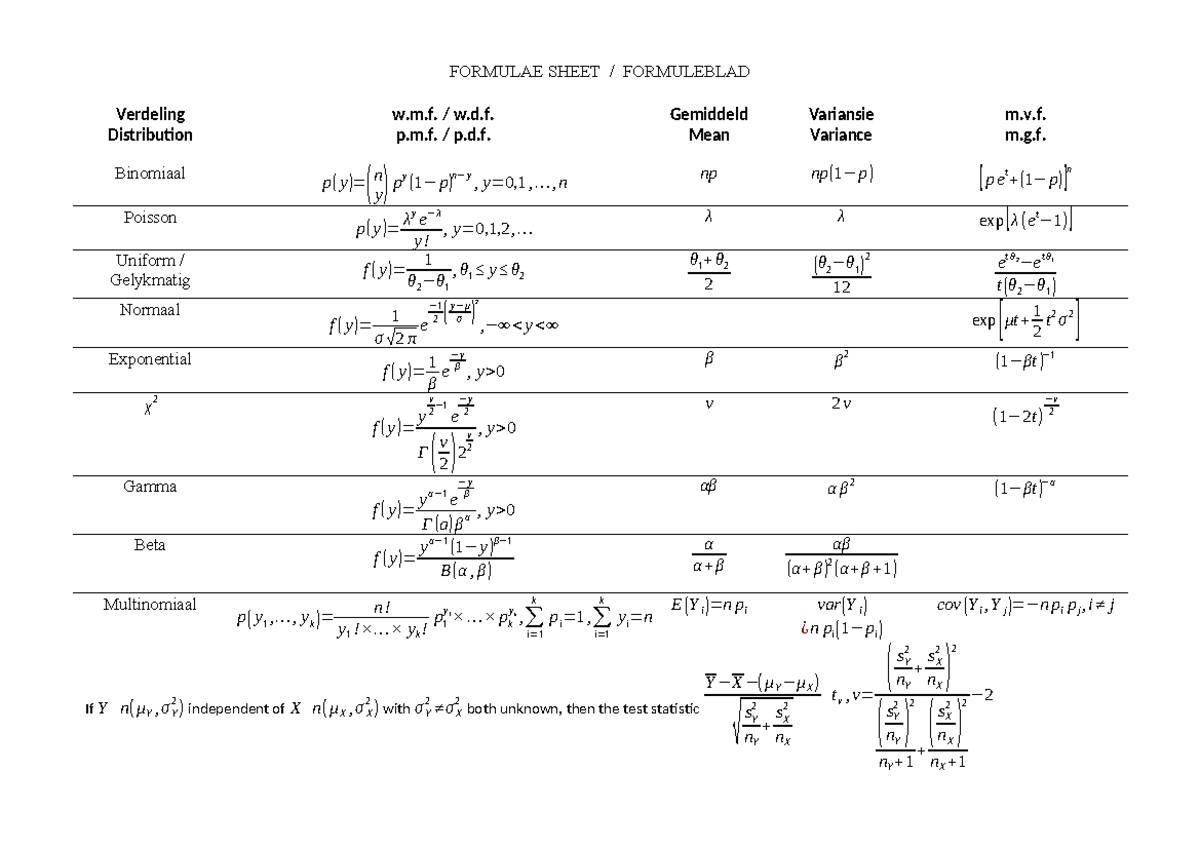 FORMULAE SHEET / FORMULEBLAD
Verdeling w.m.f. / w.d.f. Gemiddeld Variansie m.v.f.
Distribution p.m.f. / p.d.f. Mean Variance m.g.f.
Binomiaal p(y)=(n y) p^y (1−p)^{n−y}, y=0,1,…,n np np(1−p) [p e^t+(1−p)]^n
Poisson p(y)=λ^y e^{−λ}/y!, y=0,1,2,… λ λ exp[λ(e^t−1)]
Uniform / Gelykmatig f(y)=1/(θ₂−θ₁), θ₁≤y≤θ₂ (θ₁+θ₂)/2 (θ₂−θ₁)²/12 (e^{tθ₂}−e^{tθ₁})/(t(θ₂−θ₁))
Normaal f(y)=1/(σ√(2π)) e^{−1/2 ((y−μ)/σ)²}, −∞<y<∞ exp[μt+1/2 t²σ²]
Exponential f(y)=1/β e^{−y/β}, y>0 β β² (1−βt)^{−1}
χ² f(y)=y^{v/2−1} e^{−y/2}/(Γ(v/2) 2^{v/2}), y>0 v 2v (1−2t)^{−v/2}
Gamma f(y)=y^{α−1} e^{−y/β}/(Γ(a)β^α), y>0 αβ αβ² (1−βt)^{−α}
Beta f(y)=y^{α−1}(1−y)^{β−1}/B(α,β) α/(α+β) αβ/((α+β)²(α+β+1))
Multinomiaal p(y₁,…,y_k)=n!/(y₁!×…×y_k!) p₁^{y₁}×…×p_k^{y_k}, ∑_{i=1}^{k} p_i=1, ∑_{i=1}^{k} y_i=n E(Y_i)=n p_i var(Y_i) ¿n p_i(1−p_i) cov(Y_i,Y_j)=−n p_i p_j, i≠j
If Y n(μ_Y,σ_Y²) independent of X n(μ_X,σ_X²) with σ_Y²≠σ_X² both unknown, then the test statistic (Y̅−X̅−(μ_Y−μ_X))/√(s_Y²/n_Y+s_X²/n_X) t_v, v=(s_Y²/n_Y+s_X²/n_X)²/((s_Y²/n_Y)²/(n_Y+1)+(s_X²/n_X)²/(n_X+1))−2